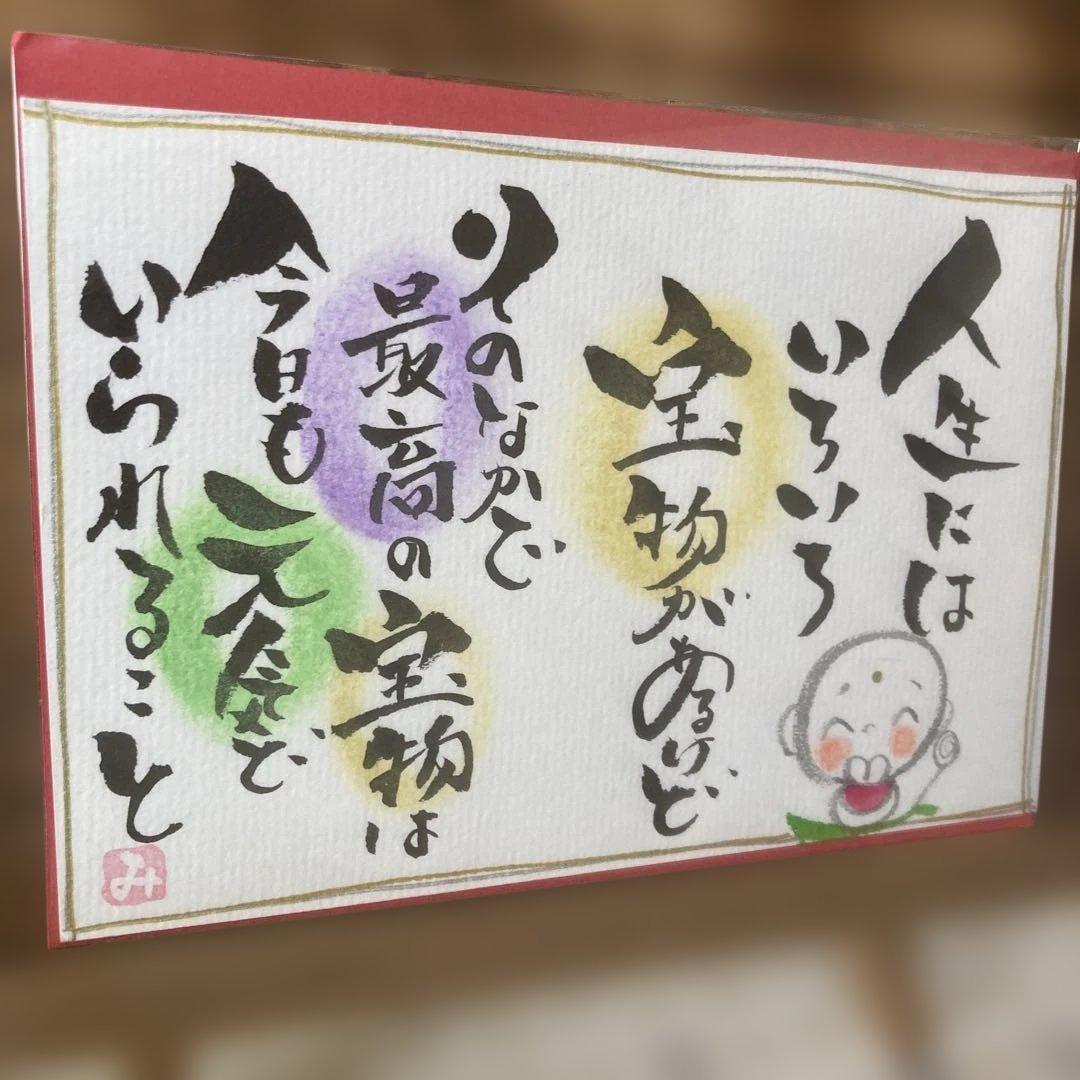 人生には
いろいろ
宝物があるけど
そのなかで
最高の宝物は
今日も元気で
いられること
み